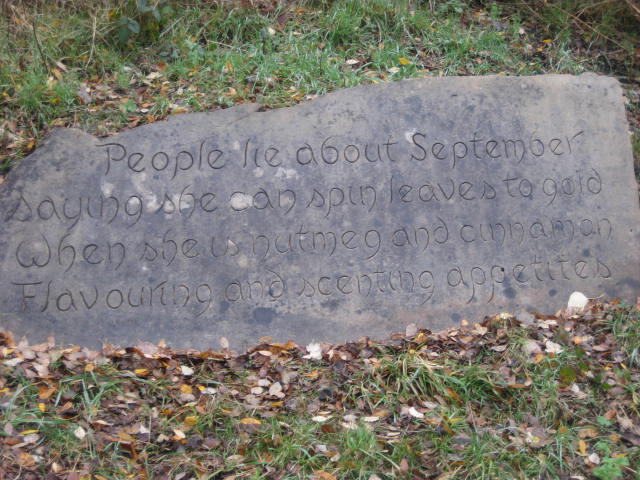 People lie about September
Saying she can spin leaves to gold
When she is nutmeg and cinnaman
Flavouring and scenting appetites